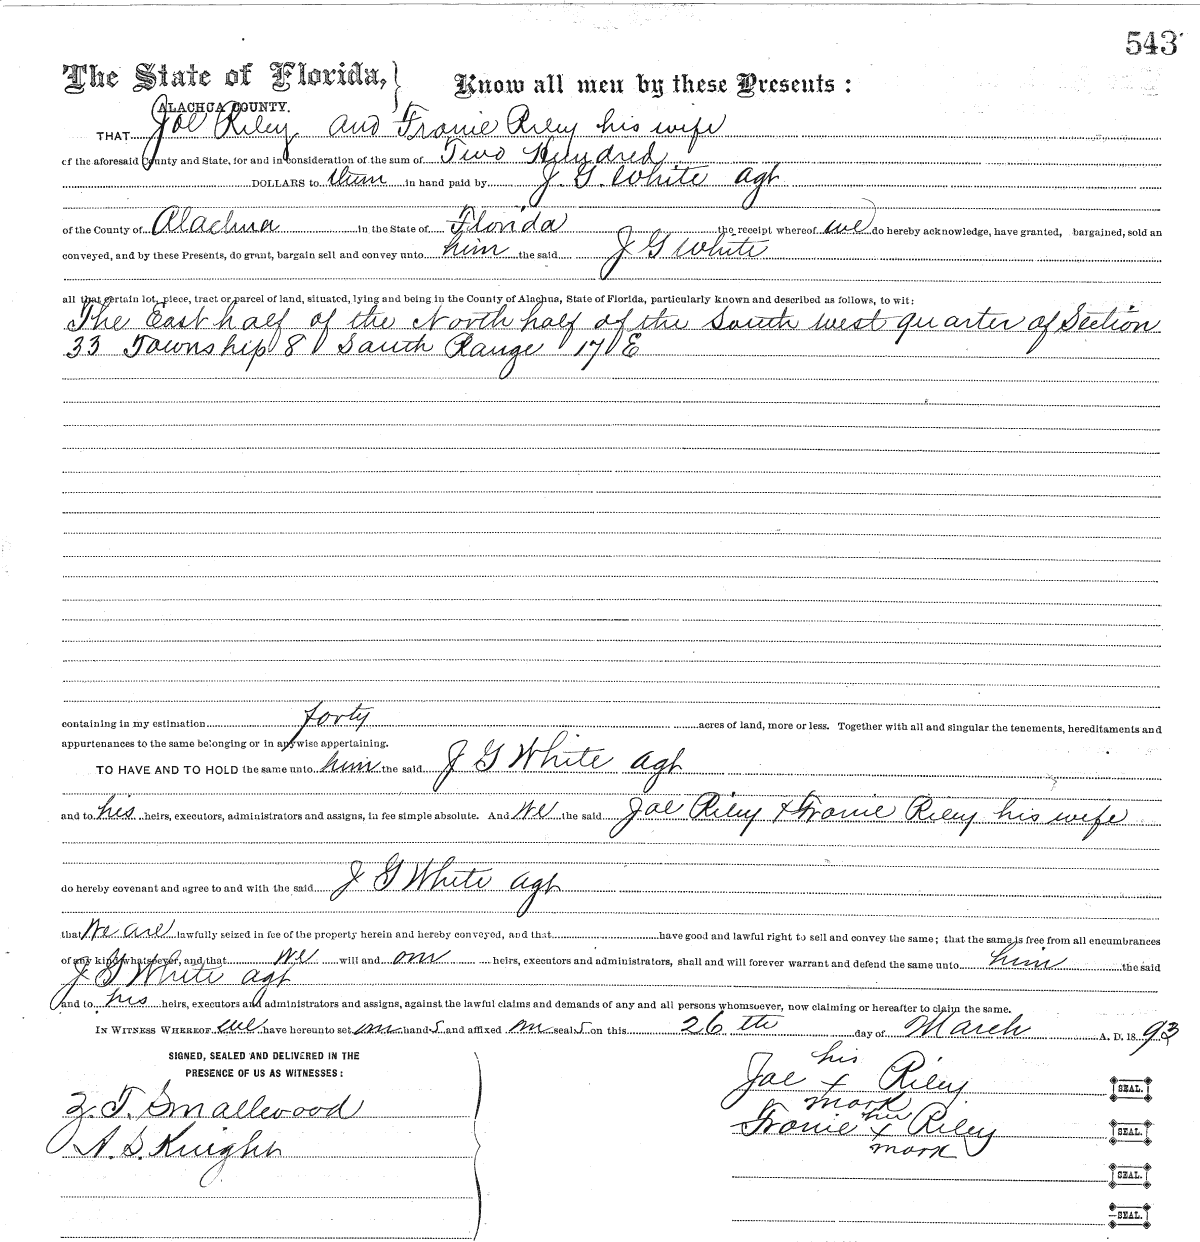 543
The State of Florida, } Know all men by these Presents :
ALACHUA COUNTY.
THAT Joe Riley and Franie Riley his wife
of the aforesaid County and State, for and in consideration of the sum of Two Hundred
DOLLARS to them in hand paid by J. G. White agt
of the County of Alachua in the State of Florida the receipt whereof we do hereby acknowledge, have granted, bargained, sold an
conveyed, and by these Presents, do grant, bargain sell and convey unto him the said J G White
all that certain lot, piece, tract or parcel of land, situated, lying and being in the County of Alachua, State of Florida, particularly known and described as follows, to wit:
The East half of the North half of the South west quarter of Section
33 Township 8 South Range 17 E
containing in my estimation forty acres of land, more or less. Together with all and singular the tenements, hereditaments and
appurtenances to the same belonging or in anywise appertaining.
TO HAVE AND TO HOLD the same unto him the said J G White agt
and to his heirs, executors, administrators and assigns, in fee simple absolute. And We the said Joe Riley & Franie Riley his wife
do hereby covenant and agree to and with the said J G White agt
that We are lawfully seized in fee of the property herein and hereby conveyed, and that have good and lawful right to sell and convey the same; that the same is free from all encumbrances
of any kind whatsoever, and that We will and our heirs, executors and administrators, shall and will forever warrant and defend the same unto him the said
J G White agt
and to his heirs, executors and administrators and assigns, against the lawful claims and demands of any and all persons whomsoever, now claiming or hereafter to claim the same.
IN WITNESS WHEREOF we have hereunto set our hand s and affixed our seal s on this 26 th day of March A. D. 18 93
SIGNED, SEALED AND DELIVERED IN THE
PRESENCE OF US AS WITNESSES :
Z. T. Smallwood
A. S. Knight
his
Joe + Riley SEAL.
mark
her
Franie + Riley SEAL.
mark
SEAL.
SEAL.